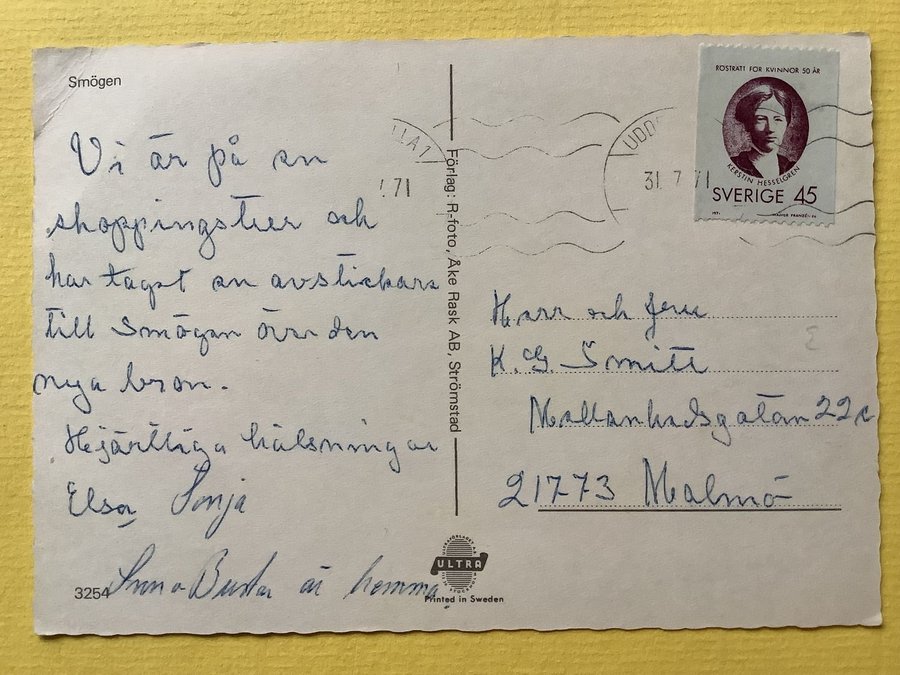 Smögen
Vi är på en
shoppingstur och
har tagit en avstickare
till Smögen över den
nya bron.
Hjärtliga hälsningar
Elsa Sonja
är hemma.
3254
Förlag: R-foto, Åke Rask AB, Strömstad
LLA 1
.71
UDD
31. 7. 71
RÖSTRÄTT FÖR KVINNOR 50 ÅR
KERSTIN HESSELGREN
SVERIGE 45
Herr och fru
K. G. Smitt
Mellanhedsgatan 22c
21773 Malmö
ULTRA
Printed in Sweden